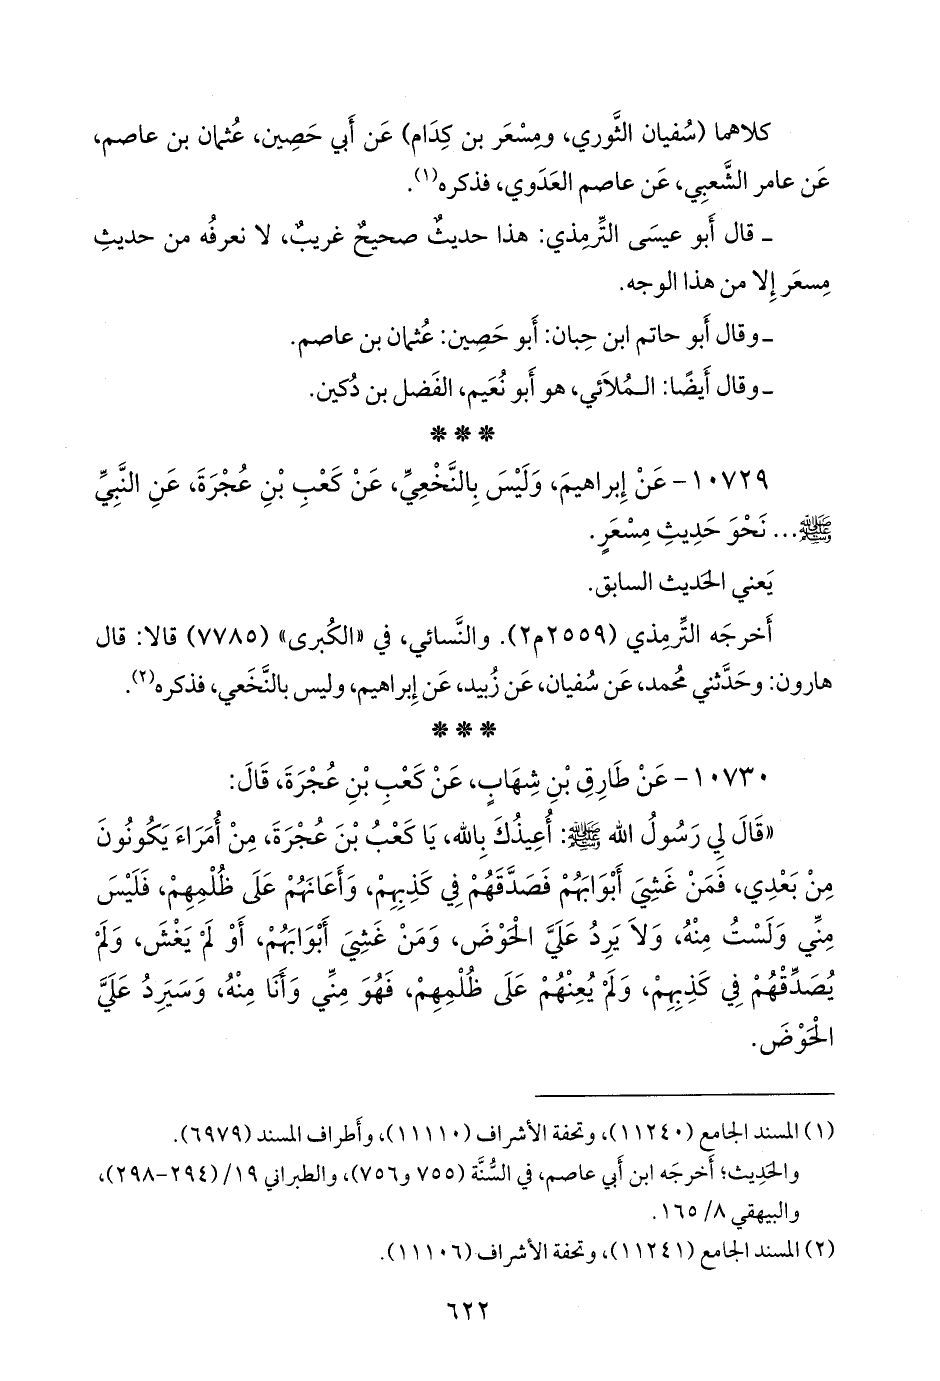 كلاهما (سُفيان الثَّوري، ومِسْعَر بن كِدَام) عَن أَبي حَصِين، عُثمان بن عاصم،
عَن عامر الشَّعبِي، عَن عاصم العَدَوي، فذكره(١).
ـ قال أَبو عيسَى التِّرمِذي: هذا حديثٌ صحيحٌ غريبٌ، لا نعرفُه من حديثِ
مِسعَر إِلا من هذا الوجه.
ـ وقال أَبو حاتم ابن حِبان: أَبو حَصِين: عُثمان بن عاصم.
ـ وقال أَيضًا: الـمُلاَئي، هو أَبو نُعَيم، الفَضل بن دُكين.
***
١٠٧٢٩ - عَنْ إِبراهيمَ، وَلَيْسَ بِالنَّخْعِيِّ، عَنْ كَعْبِ بْنِ عُجْرَةَ، عَنِ النَّبِيِّ
ﷺ... نَحْوَ حَدِيثِ مِسْعَرٍ.
يَعني الحَديث السابق.
أَخرجَه التِّرمِذي (٢٥٥٩م٢). والنَّسائي، في «الكُبرى» (٧٧٨٥) قالا: قال
هارون: وحَدَّثني مُحمد، عَن سُفيان، عَن زُبيد، عَن إِبراهيم، وليس بالنَّخَعي، فذكره(٢).
***
١٠٧٣٠ - عَنْ طَارِقِ بْنِ شِهَابٍ، عَنْ كَعْبِ بْنِ عُجْرَةَ، قَالَ:
«قَالَ لِي رَسُولُ الله ﷺ: أُعِيذُكَ بِالله، يَا كَعْبُ بْنَ عُجْرَةَ، مِنْ أُمَرَاءَ يَكُونُونَ
مِنْ بَعْدِي، فَمَنْ غَشِيَ أَبْوَابَهُمْ فَصَدَّقَهُمْ فِي كَذِبِهِمْ، وَأَعَانَهُمْ عَلَى ظُلْمِهِمْ، فَلَيْسَ
مِنِّي وَلَسْتُ مِنْهُ، وَلاَ يَرِدُ عَلَيَّ الْحَوْضَ، وَمَنْ غَشِيَ أَبْوَابَهُمْ، أَوْ لَمْ يَغْشَ، وَلَمْ
يُصَدِّقْهُمْ فِي كَذِبِهِمْ، وَلَمْ يُعِنْهُمْ عَلَى ظُلْمِهِمْ، فَهُوَ مِنِّي وَأَنَا مِنْهُ، وَسَيَرِدُ عَلَيَّ
الْحَوْضَ.
(١) المسند الجامع (١١٢٤٠)، وتحفة الأشراف (١١١١٠)، وأطراف المسند (٦٩٧٩).
والحَدِيث؛ أَخرجَه ابن أَبي عاصم، في السُّنَّة (٧٥٥ و٧٥٦)، والطبراني ١٩/ (٢٩٤-٢٩٨)،
والبيهقي ٨/ ١٦٥.
(٢) المسند الجامع (١١٢٤١)، وتحفة الأشراف (١١١٠٦).
٦٢٢